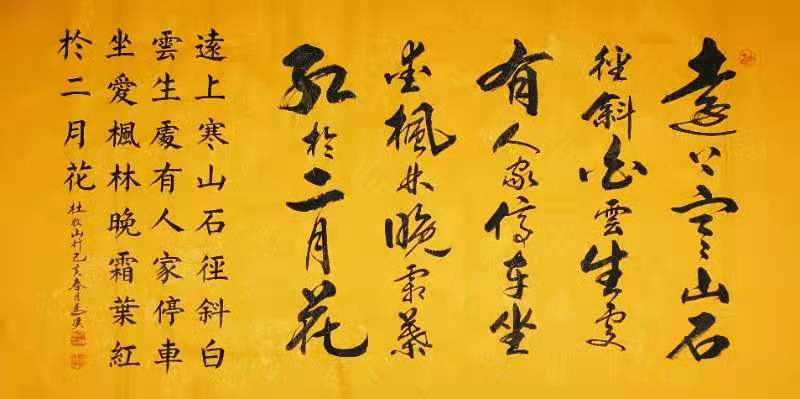 遠上寒山石
徑斜白雲生處
有人家停車坐
愛楓林晚霜葉
紅於二月花
遠上寒山石徑斜白
雲生處有人家停車
坐愛楓林晚霜葉紅
於二月花
杜牧山行己亥春月